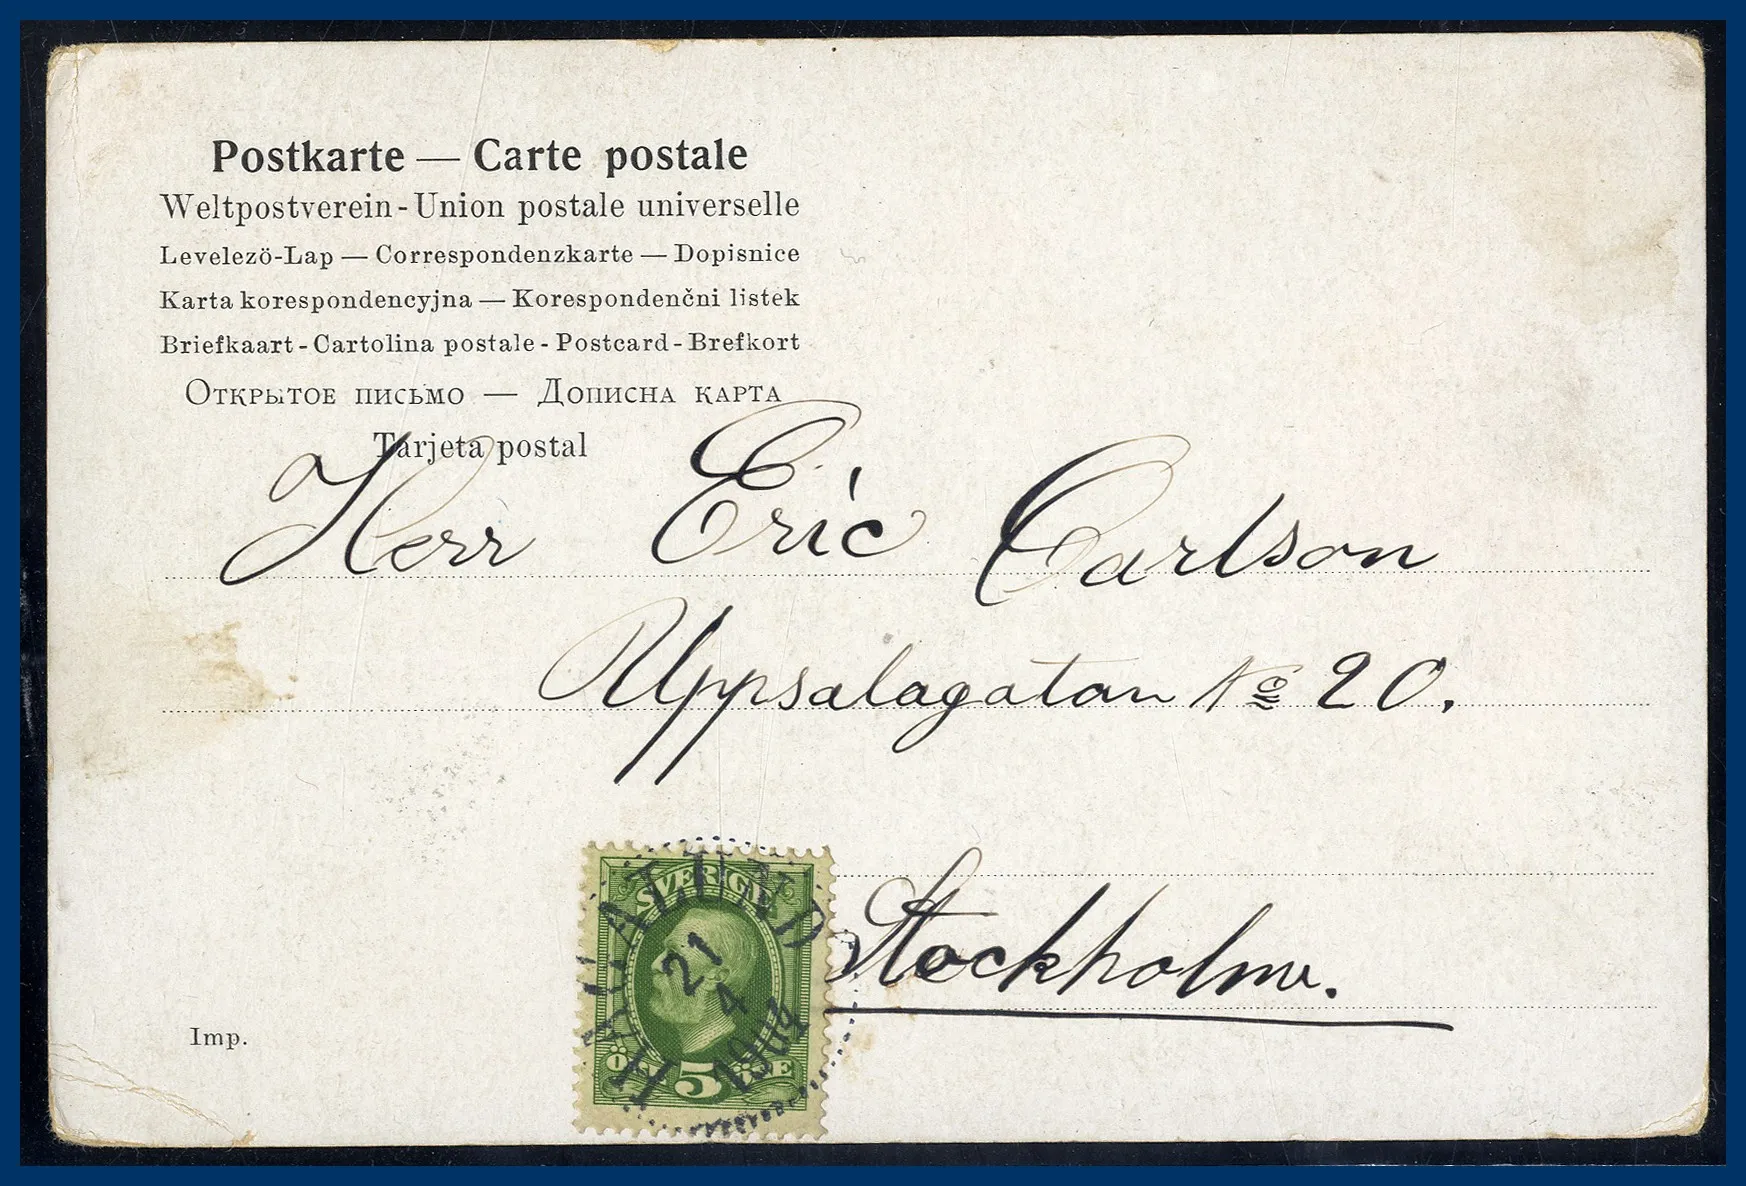 Postkarte — Carte postale
Weltpostverein - Union postale universelle
Levelezö-Lap — Correspondenzkarte — Dopisnice
Karta korespondencyjna — Korespondenčni listek
Briefkaart - Cartolina postale - Postcard - Brefkort
Открытое письмо — Дописна карта
Tarjeta postal
Herr Eric Carlson
Uppsalagatan No 20.
Stockholm.
SVERIGE
21
4
ÖRE 5 ÖRE
Imp.